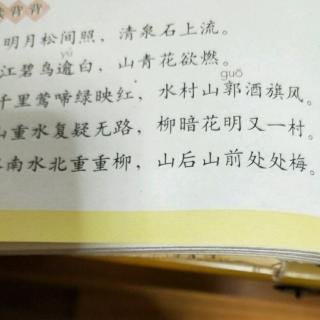 背背
明月松间照，清泉石上流。
yú
江碧鸟逾白，山青花欲燃。
guō
千里莺啼绿映红，水村山郭酒旗风。
重水复疑无路，柳暗花明又一村。
南水北重重柳，山后山前处处梅。